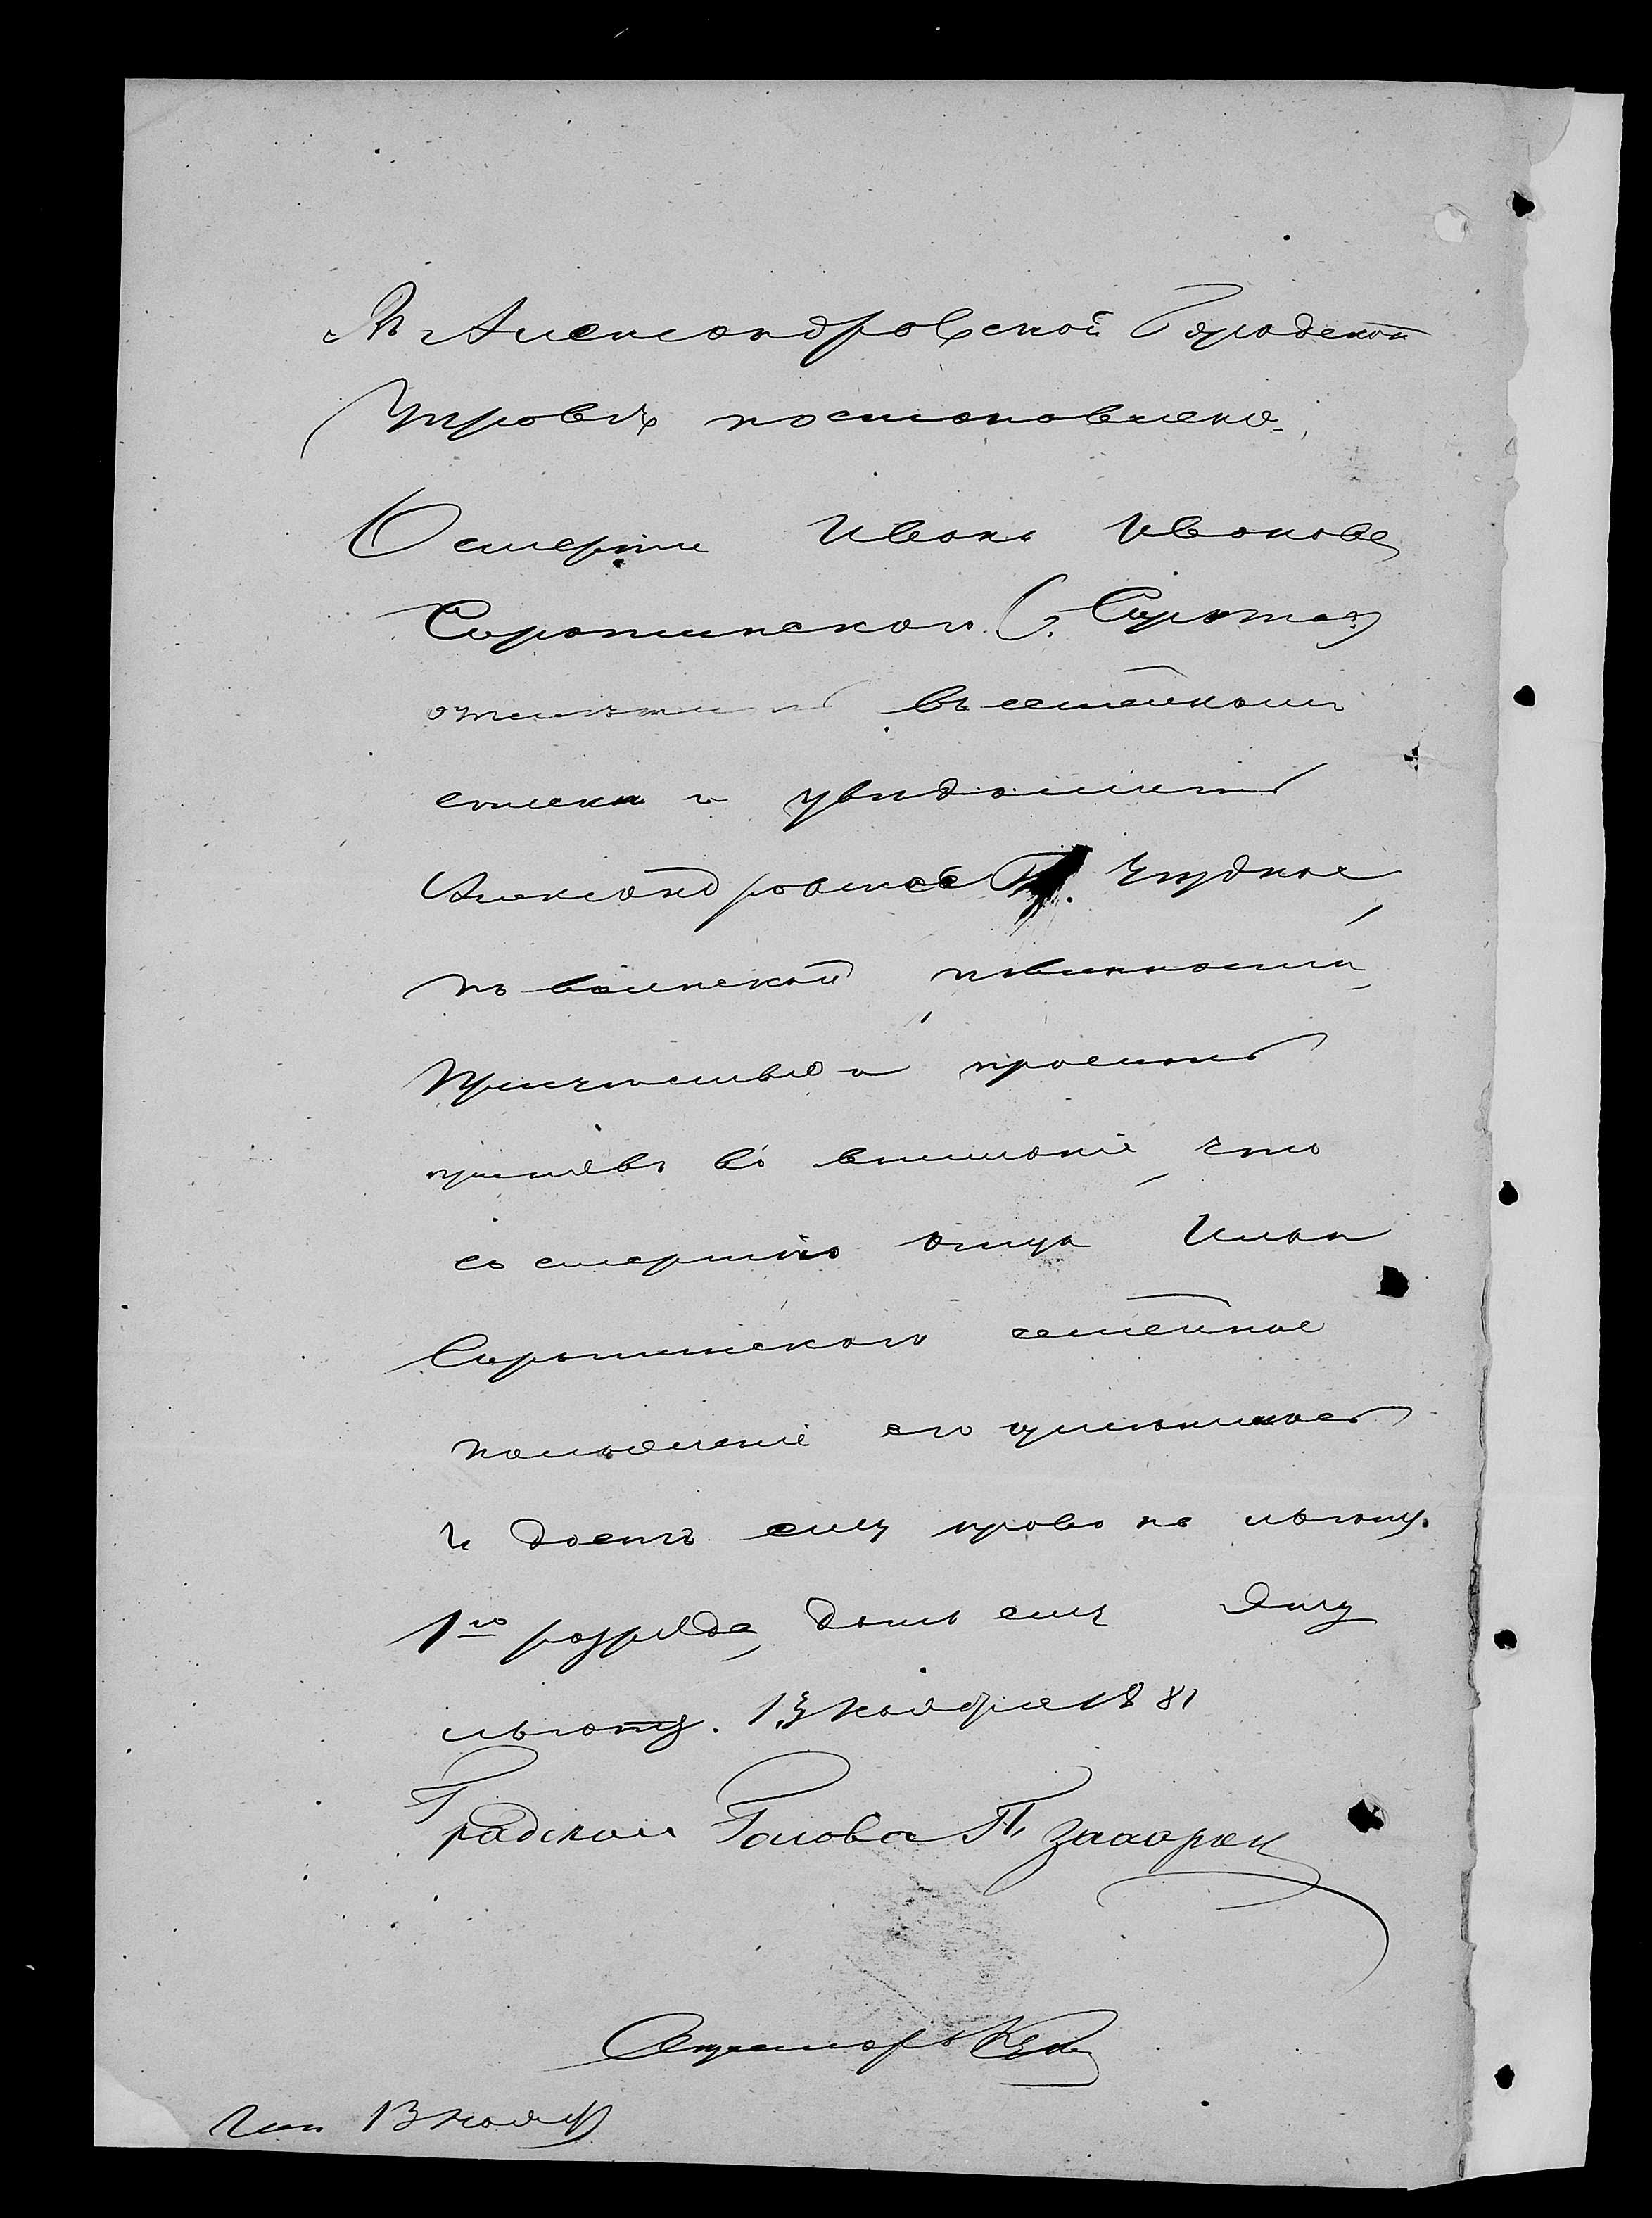 Въ Александровской Городской
Управѣ постановлено:
О смерти Ивана Иванова
Сиротинского (Сирота)
отмѣтить въ семейномъ
спискѣ и увѣдомить
Александровское Уѣздное
по воинской повинности
Присутствіе и просить
принявъ во вниманіе, что
со смертію отца Ивана
Сиротинского семейное
положеніе его измѣняется
и даетъ ему право на льготу
1го разряда, дать ему эту
льготу. 13 ноября 1881
Градской Голова П.
Секретарь
13 нояб